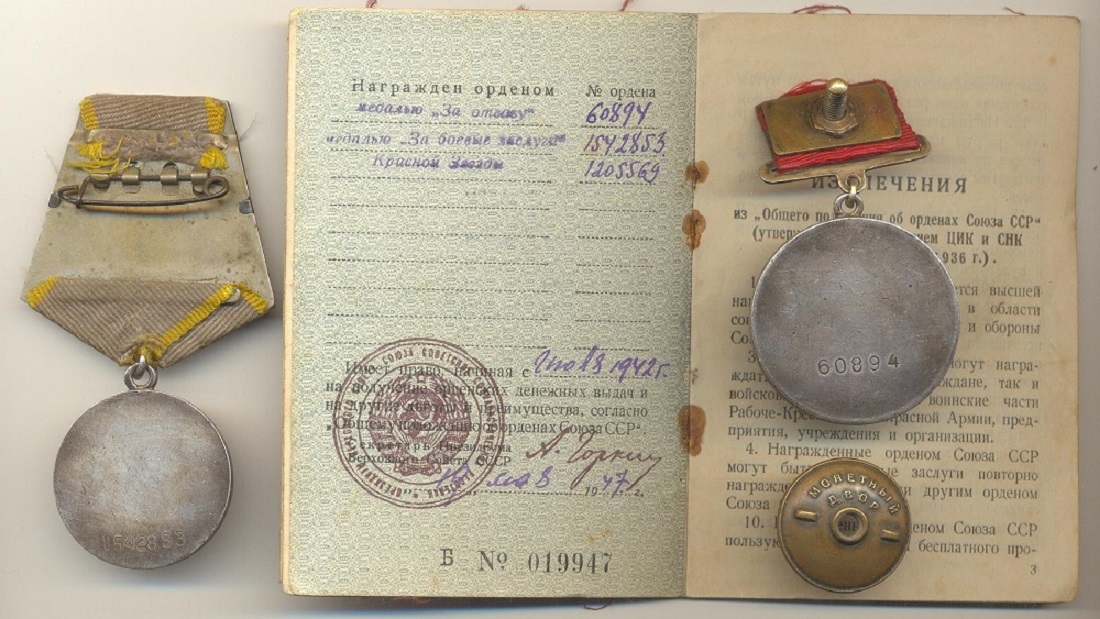 Награжден орденом № ордена
медалью „За отвагу" 60894
медалью „За боевые заслуги" 1542853
Красной Звезды 1205569
Имеет право, начиная с 1942 г.
на получение орденских денежных выдач и
на другие льготы и преимущества, согласно
„Общему положению об орденах Союза ССР".
Секретарь Президиума
Верховного Совета СССР А. Горкин
мая 1947 г.
Б № 019947
1542853
ИЗ ЧЕНИЯ
из „Общего по ия об орденах Союза ССР"
ем ЦИК и СНК
1936 г.).
ется высшей
в области
и обороны
могут награ-
ждат ждане, так и
войсков воинские части
Рабоче-Кре расной Армии, пред-
приятия, учреждения и организации.
4. Награжденные орденом Союза ССР
могут бы ые заслуги повторно
награжд и другим орденом
Союза
10. еном Союза ССР
пользую бесплатного про-
3
60894
МОНЕТНЫЙ
ДВОР